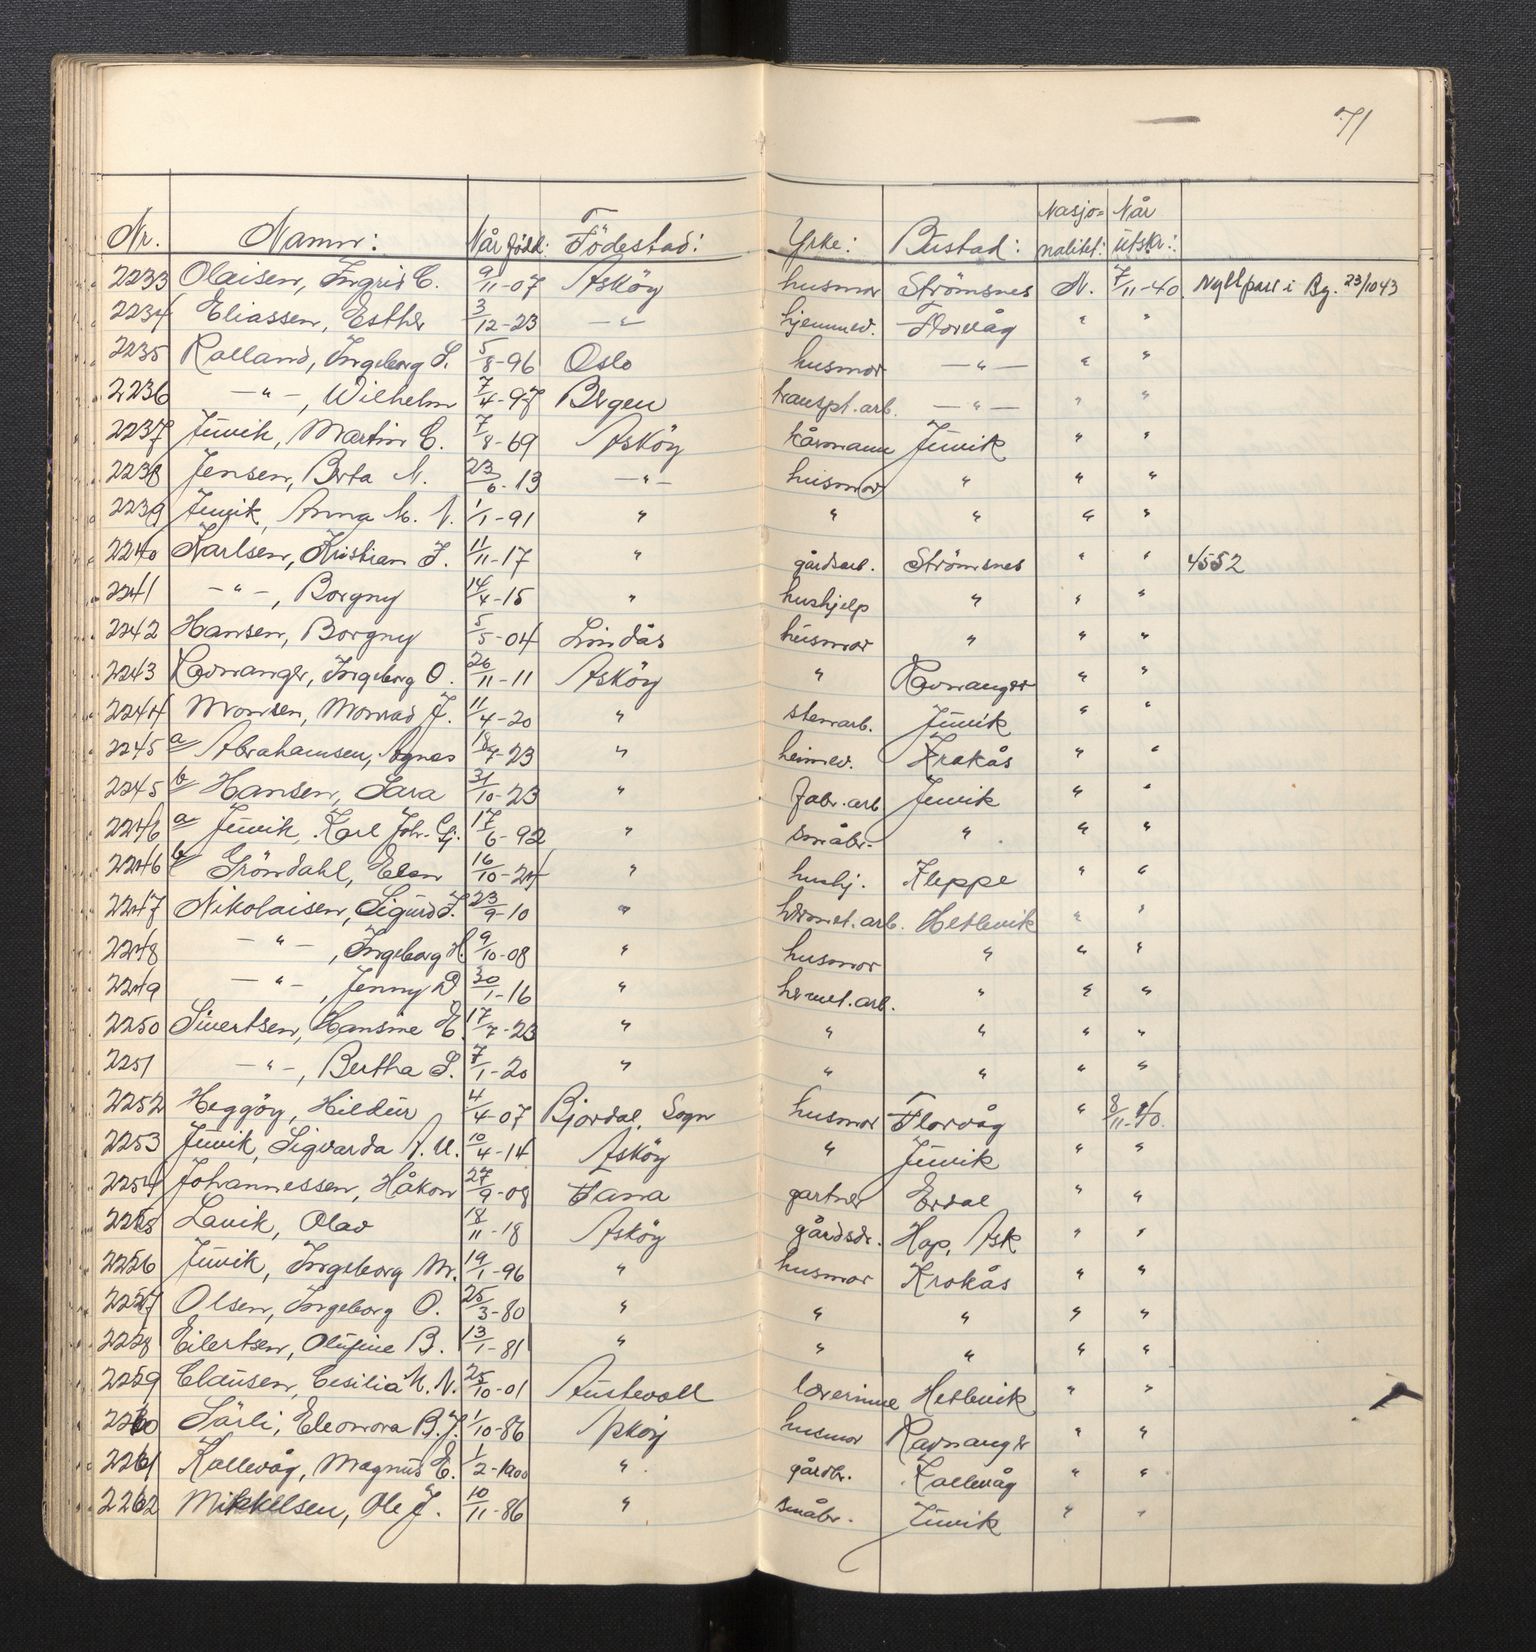 71
Nr. Namn: Når född: Födestad: Yrke: Bustad: Nasjo= nalitet: Når utskr.:
2233 Olaisen, Ingrid C. 9/11-07 Asköy husmor Strömsnes N. 7/11-40 Nytt pass i Bg. 23/10 43
2234 Eliassen, Esther 3/12-23 — " — hjemmev. Florvåg " "
2235 Rolland, Ingeborg S. 5/8-96 Oslo husmor — " — " "
2236 — " —, Wilhelm 7/4-97 Bergen transpt. arb. — " — " "
2237 Juvik, Martin C. 7/8-69 Asköy kårmann Juvik " "
2238 Jensen, Berta N. 23/6-13 — " — husmor " " "
2239 Juvik, Anna M. N. 1/1-91 " " " " "
2240 Karlsen, Kristian J. 11/11-17 " gårdsarb. Strömsnes " " 4552
2241 — " —, Borgny 14/4-15 " hushjelp " " "
2242 Hansen, Borgny 5/5-04 Lindås husmor " " "
2243 Ravnanger, Ingeborg O. 26/11-11 Asköy " Ravnanger " "
2244 Monsen, Monrad J. 11/4-20 " stenarb. Juvik " "
2245 a Abrahamsen, Agnes 18/7-23 " heimev. Krokås " "
2245 b Hansen, Sara 31/10-23 " fabr. arb Juvik " "
2246 a Juvik, Karl Joh. G. 17/6-92 " småbr. " " "
2246 b Gröndahl, Elen 16/10-24 " hushj. Kleppe " "
2247 Nikolaisen, Sigurd J. 23/9-10 " hermet. arb. Hetlevik " "
2248 — " —, Ingeborg H. 9/10-08 " husmor " " "
2249 — " —, Jenny D 30/1-16 " hermet. arb. " " "
2250 Sivertsen, Hansine E. 17/7-23 " " " " "
2251 — " —, Bertha S. 7/1-20 " " " " "
2252 Heggöy, Hildur 4/4-07 Bjordal, Sogn husmor Florvåg " 8/11-40.
2253 Juvik, Sigvarda A. M. 10/4-14 Asköy " Juvik " "
2254 Johannessen, Håkon 27/9-08 Fana gartner Erdal " "
2255 Lavik, Olav 18/11-18 Asköy gårdsdr. Hop, Ask " "
2256 Juvik, Ingeborg M. 19/1-96 " husmor Krokås " "
2257 Olsen, Ingeborg O. 25/3-80 " " " " "
2258 Eilertsen, Olufine B. 13/1-81 " " " " "
2259 Clausen, Cesilia M. N. 25/10-01 Austevoll lærerinne Hetlevik " "
2260 Särli, Eleonora B. J. 1/10-86 Asköy husmor Ravnanger " "
2261 Kollevåg, Magnus E. 1/2-1900 " gårdbr. Kollevåg " "
2262 Mikkelsen, Ole J. 10/11-86 " småbr. Juvik " "